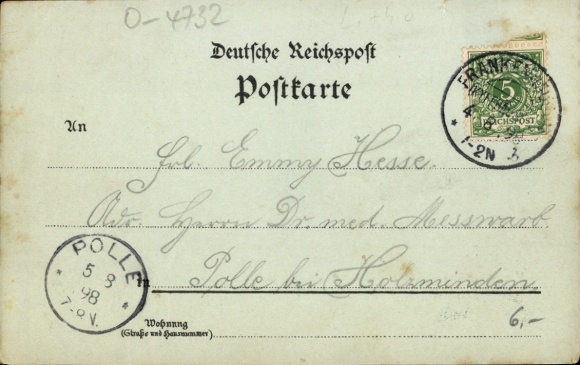 O-4732
Deutsche Reichspost
Postkarte
5
REICHSPOST
4 8 98
1-2N
An
Frl. Emmy Hesse.
Adr. Herrn Dr. med. Messwarb.
in Polle bei Holzminden.
POLLE
5 8
98
7-8V.
Wohnung
(Straße und Hausnummer)
6,-